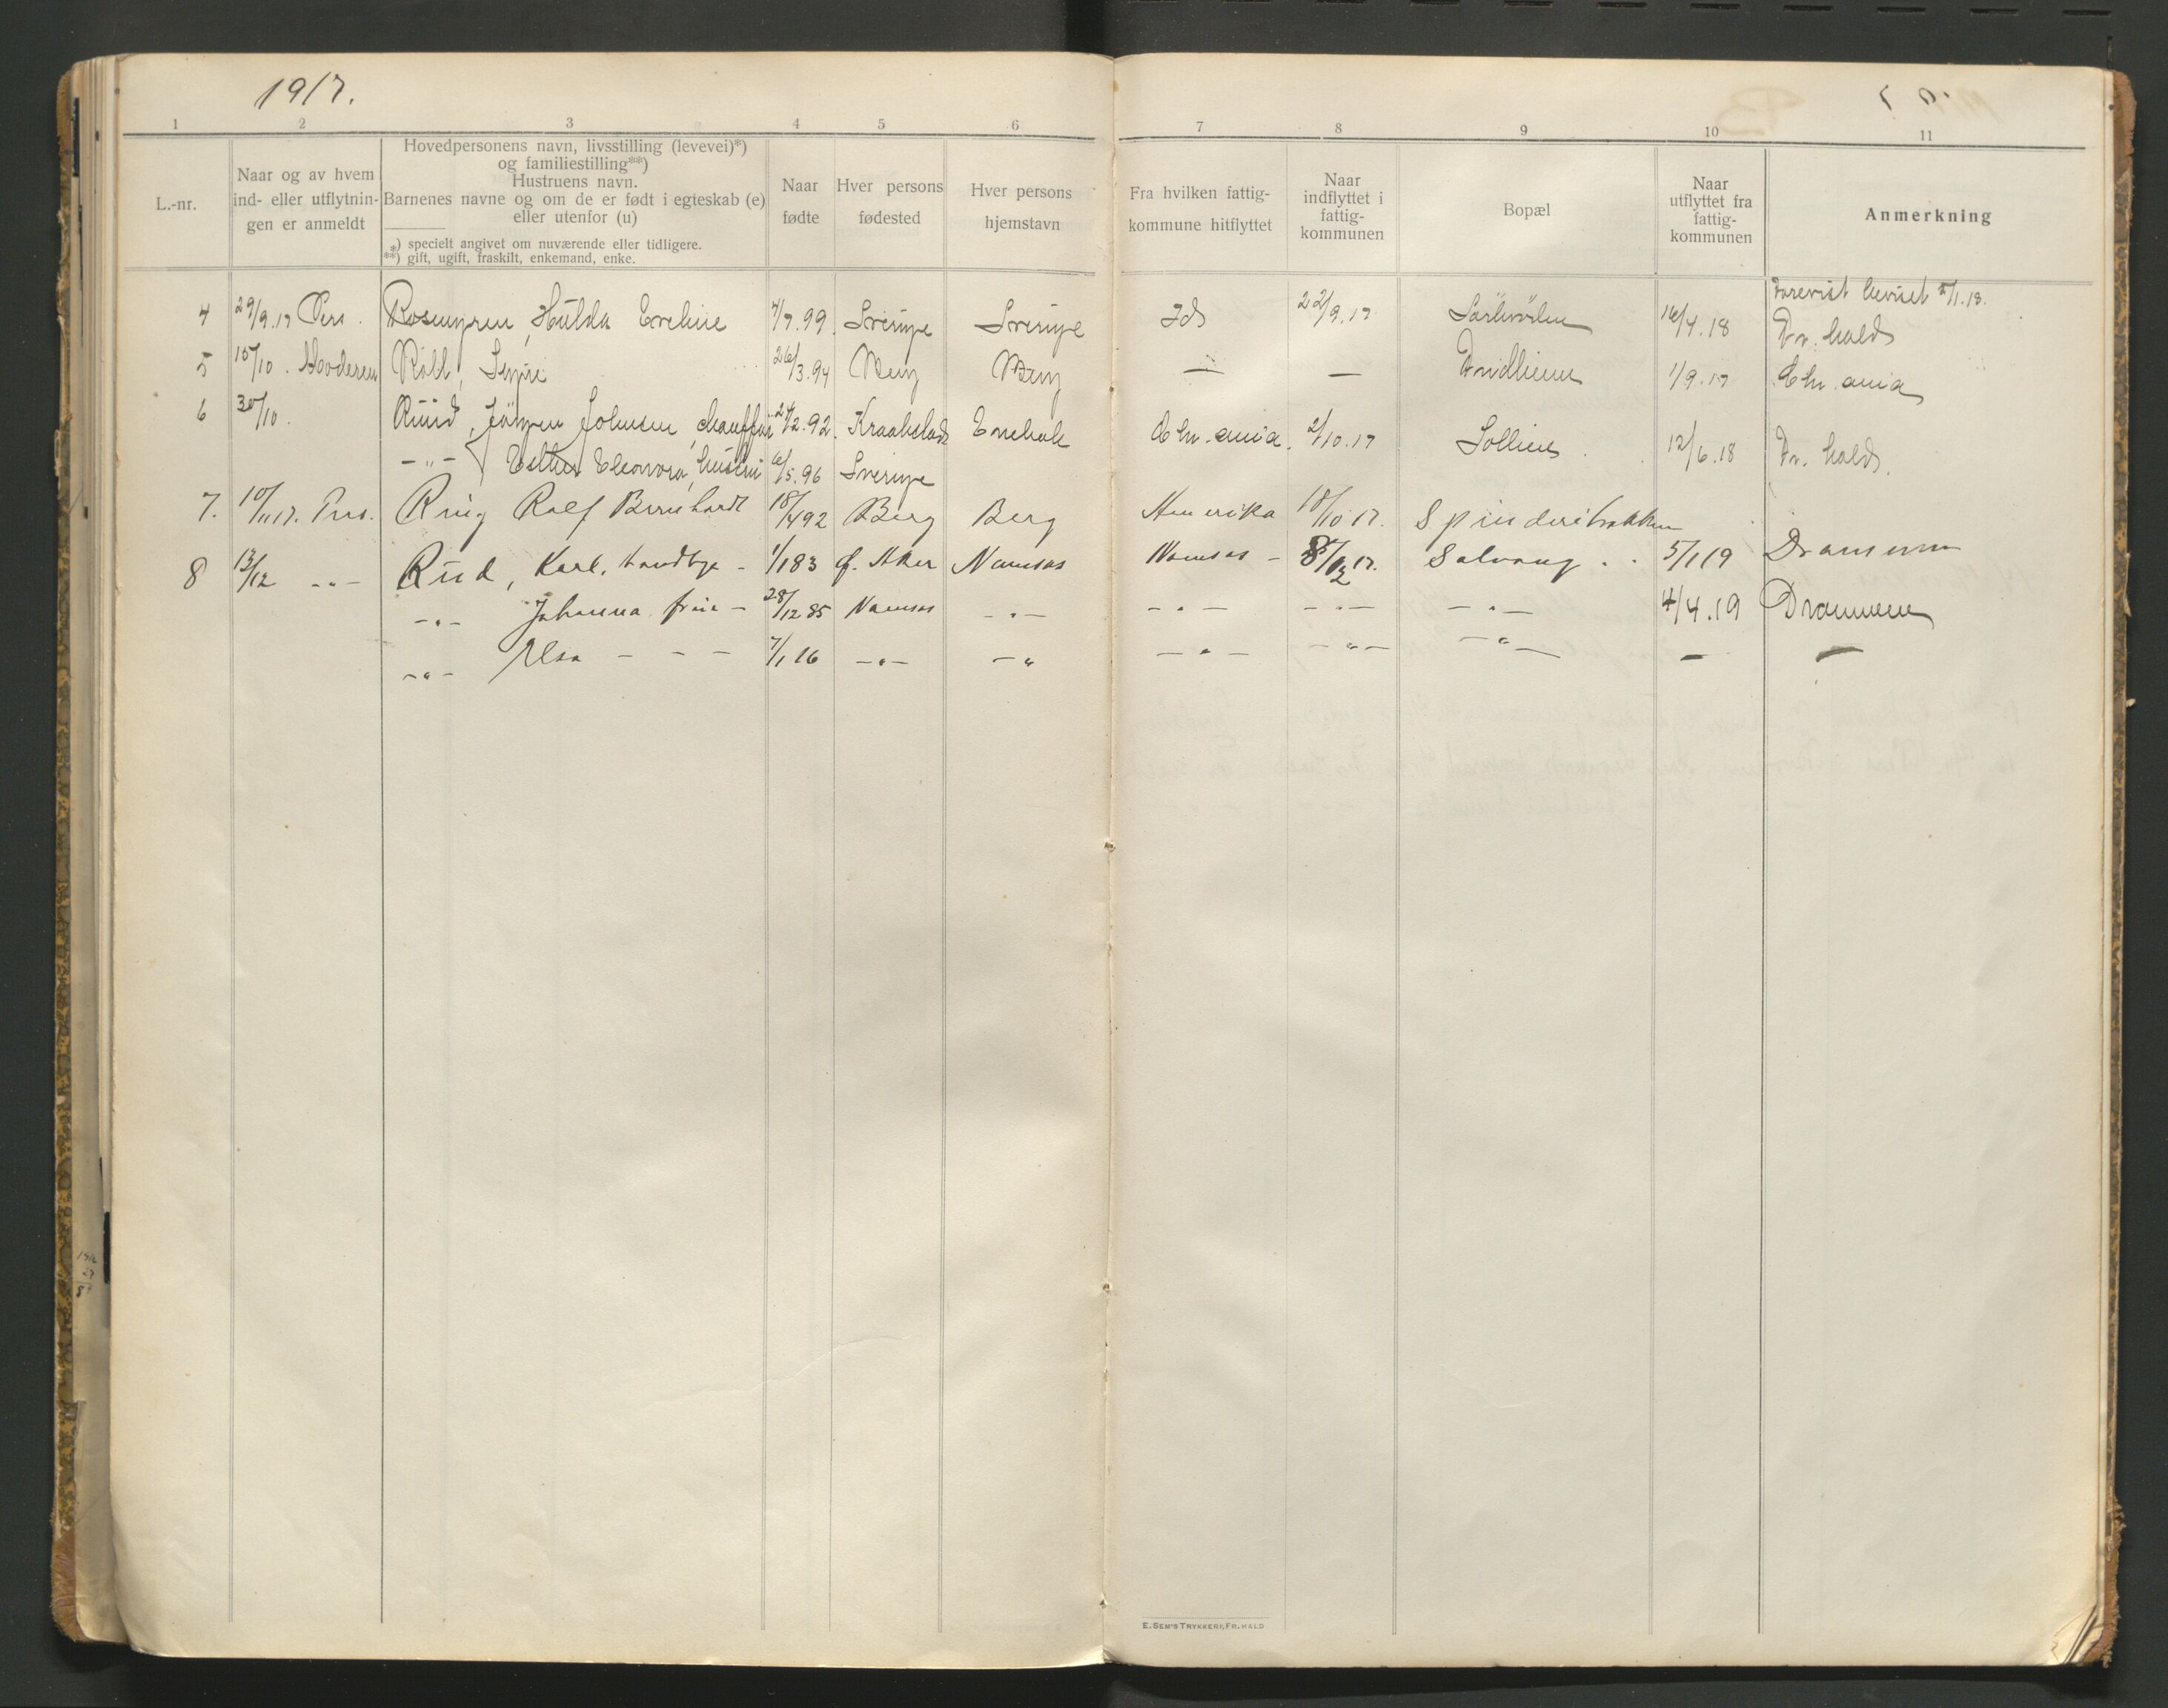 1917.
1 2 3 4 5 6 7 8 9 10 11
L.-nr.
Naar og av hvem
ind- eller utflytnin-
gen er anmeldt
Hovedpersonens navn, livsstilling (levevei)*)
og familiestilling**)
Hustruens navn.
Barnenes navne og om de er født i egteskab (e)
eller utenfor (u)
*) specielt angivet om nuværende eller tidligere.
**) gift, ugift, fraskilt, enkemand, enke.
Naar
fødte
Hver persons
fødested
Hver persons
hjemstavn
Fra hvilken fattig-
kommune hitflyttet
Naar
indflyttet i
fattig-
kommunen
Bopæl
Naar
utflyttet fra
fattig-
kommunen
Anmerkning
Forevist beviset 5/1.18.
4 29/9.17 Pers. Rosengren, Hulda Eveline 4/7.99. Sverige Sverige Ids 22/9.17 16/4.18 Fr. hald
5 10/10. Moderen Röll, Signe 26/3.94 Berg Berg — — Fredheim 1/9.17 Chr.ania
6 30/10. Ruud, Jörgen Johnsen, chauffør 24/2.92. Kraakstad Enebak Chr.ania. 2/10.17 Sollien 12/6.18 Fr. hald.
-"- Esther Eleonora, hustru 6/5.96 Sverige
7. 10/11 17. Pers. Ring Rolf Bernhardt 18/4 92 Berg Berg Amerika 18/10 17. Spinderibakken
8 13/12 -"- Rud, Karl, handbge - 1/1 83 f. Aker Namsos Namsos - 8/12 17. Solvang. 5/1 19 Drammen
-"- Johanna frue - 28/12 85 Namsos -"- -"- -"- -"- 4/4.19 Drammen
-"- Elsa - - - 7/1 16 -"- -" -"- -"- -"- — —
E. SEM'S TRYKKERI, FR.HALD